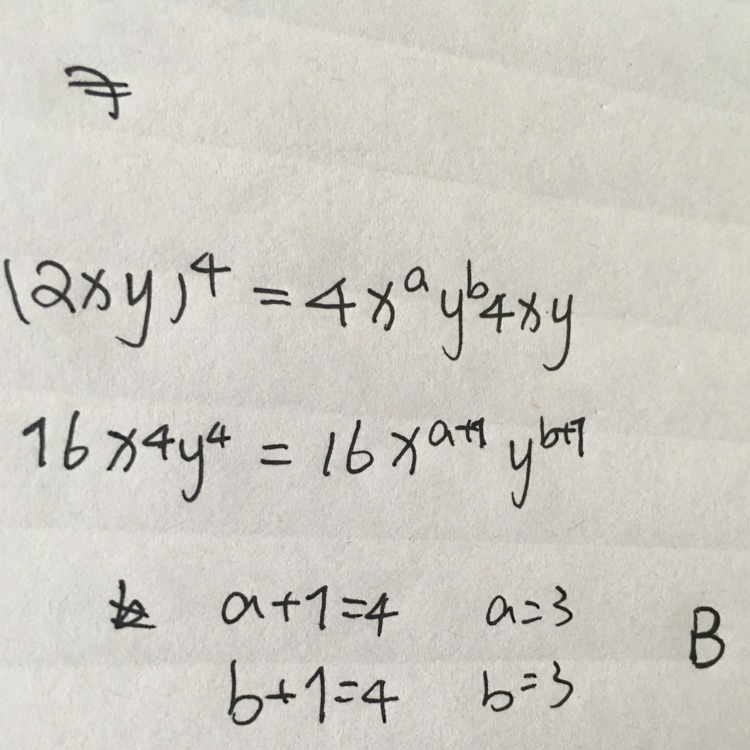 (2xy)⁴ = 4xᵃyᵇ4xy
16x⁴y⁴ = 16xᵃ⁺¹ yᵇ⁺¹
a+1=4 a=3 B
b+1=4 b=3